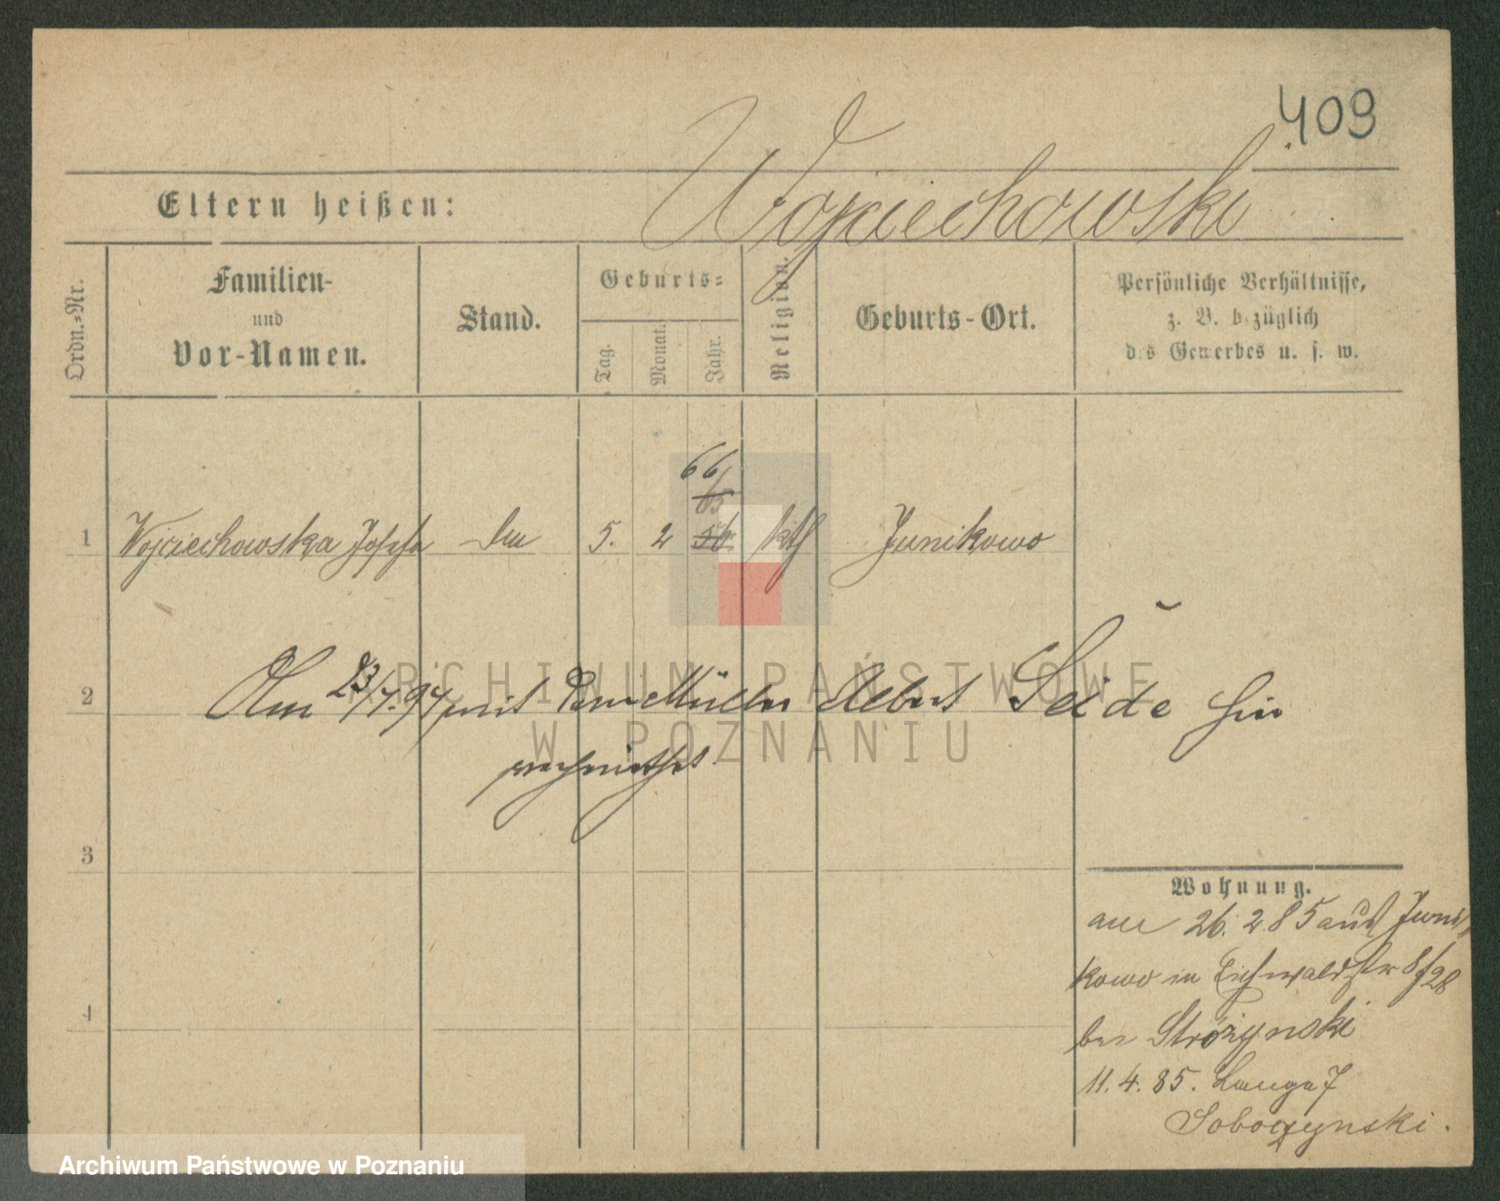 409
Wojciechowski
Eltern heißen:
Ordn.-Nr.
Familien-
und
Vor-Namen.
Stand.
Geburts-
Tag.
Monat.
Jahr.
Religion.
Geburts-Ort.
Persönliche Verhältnisse,
z. B. bezüglich
des Gewerbes u. s. w.
66
1 Wojciechowska Josefa 5. 2 56 kth Junikowo
2 Am 23/7.94 mit dem Müller Albert Seide hier
verheirathet
3
4
Wohnung.
am 26. 2 85 aus Juni
kowo in Eichwaldstr 8/28
bei Stróżynski
11. 4. 85. Lange 7
Soboczynski.
ARCHIWUM PAŃSTWOWE
W POZNANIU
Archiwum Państwowe w Poznaniu